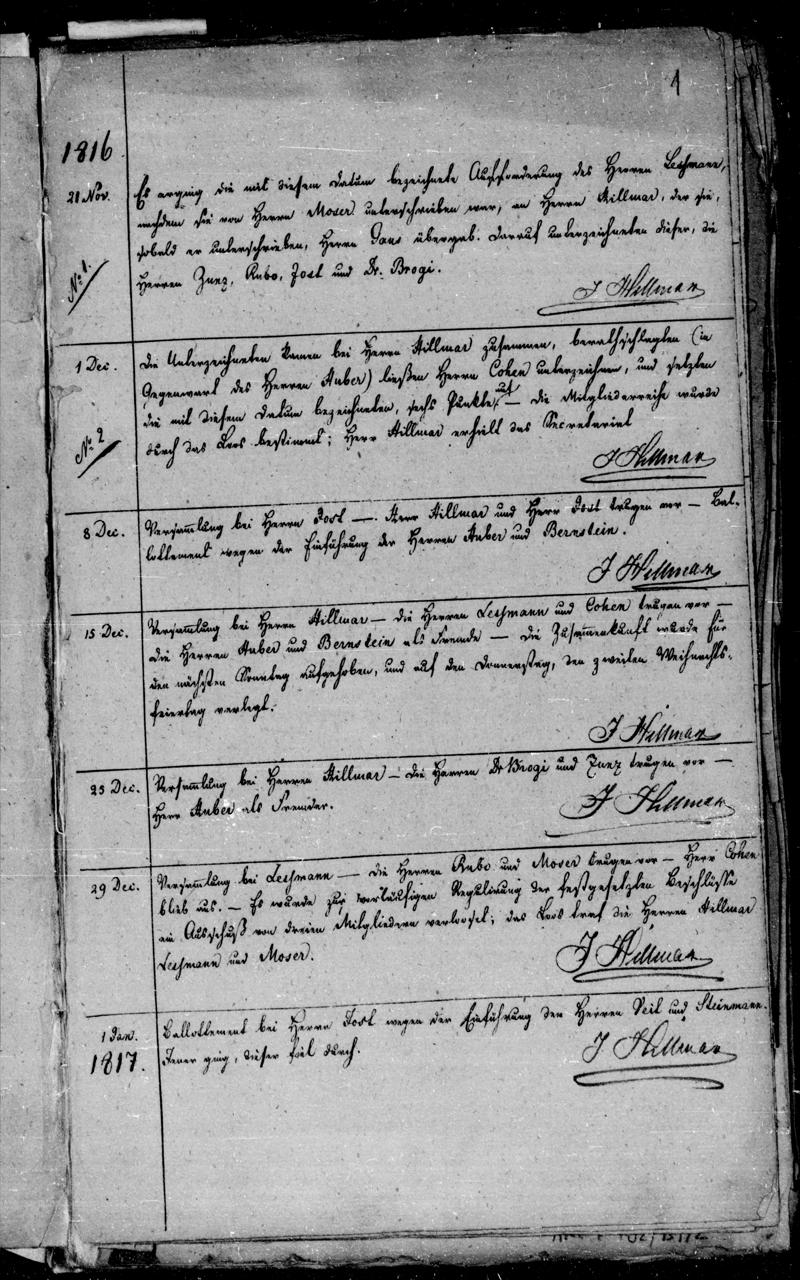 1
1816.
21 Nov.
Es erging die mit diesem Datum bezeichnete Aufforderung des Herren Lessmann,
nachdem sie von Herrn Moser unterschrieben war, an Herrn Hillmar, der sie,
sobald er unterschrieben, Herrn Gans übergab. Darauf unterzeichneten dieser, die
Herren Zunz, Rubo, Jost und Dr. Brogi.
No 1.
J Hillmar
1 Dec.
Die Unterzeichneten kamen bei Herrn Hillmar zusammen, berathschlagten (in
Gegenwart des Herren Auber) ließen Herrn Cohen unterzeichnen, und setzten
die mit diesem Datum bezeichneten, sechs Punkte — Die Mitgliederreihe wurde
durch das Loos bestimmt; Herr Hillmar erhielt das Secretariat
No 2
J Hillmar
8 Dec.
Versammlung bei Herrn Jost —. Herr Hillmar und Herr Jost trugen vor — Bal-
lottement wegen der Einführung der Herren Auber und Bernstein.
J Hillmar
15 Dec.
Versammlung bei Herrn Hillmar — die Herren Lessmann und Cohen trugen vor —
die Herren Auber und Bernstein als Fremde — Die Zusammenkunft wurde für
den nächsten Sonntag aufgehoben, und auf den Donnerstag, den zweiten Weihnachts-
feiertag verlegt.
J Hillmar
25 Dec.
Versammlung bei Herren Hillmar — die Herren Dr Brogi und Zunz trugen vor —
Herr Auber als Fremder.
J Hillmar
29 Dec.
Versammlung bei Lessmann — die Herren Rubo und Moser trugen vor — Herr Cohen
blieb aus. — Es wurde zur vorläufigen Regulirung der festgesetzten Beschlüsse
ein Ausschuß von dreien Mitgliedern verlooset; das Loos traf die Herren Hillmar
Lessmann und Moser.
J Hillmar
1 Jan.
1817.
Ballottement bei Herrn Jost wegen der Einführung den Herren Veit und Steinmann.
Jener ging, dieser fiel durch.
J Hillmar